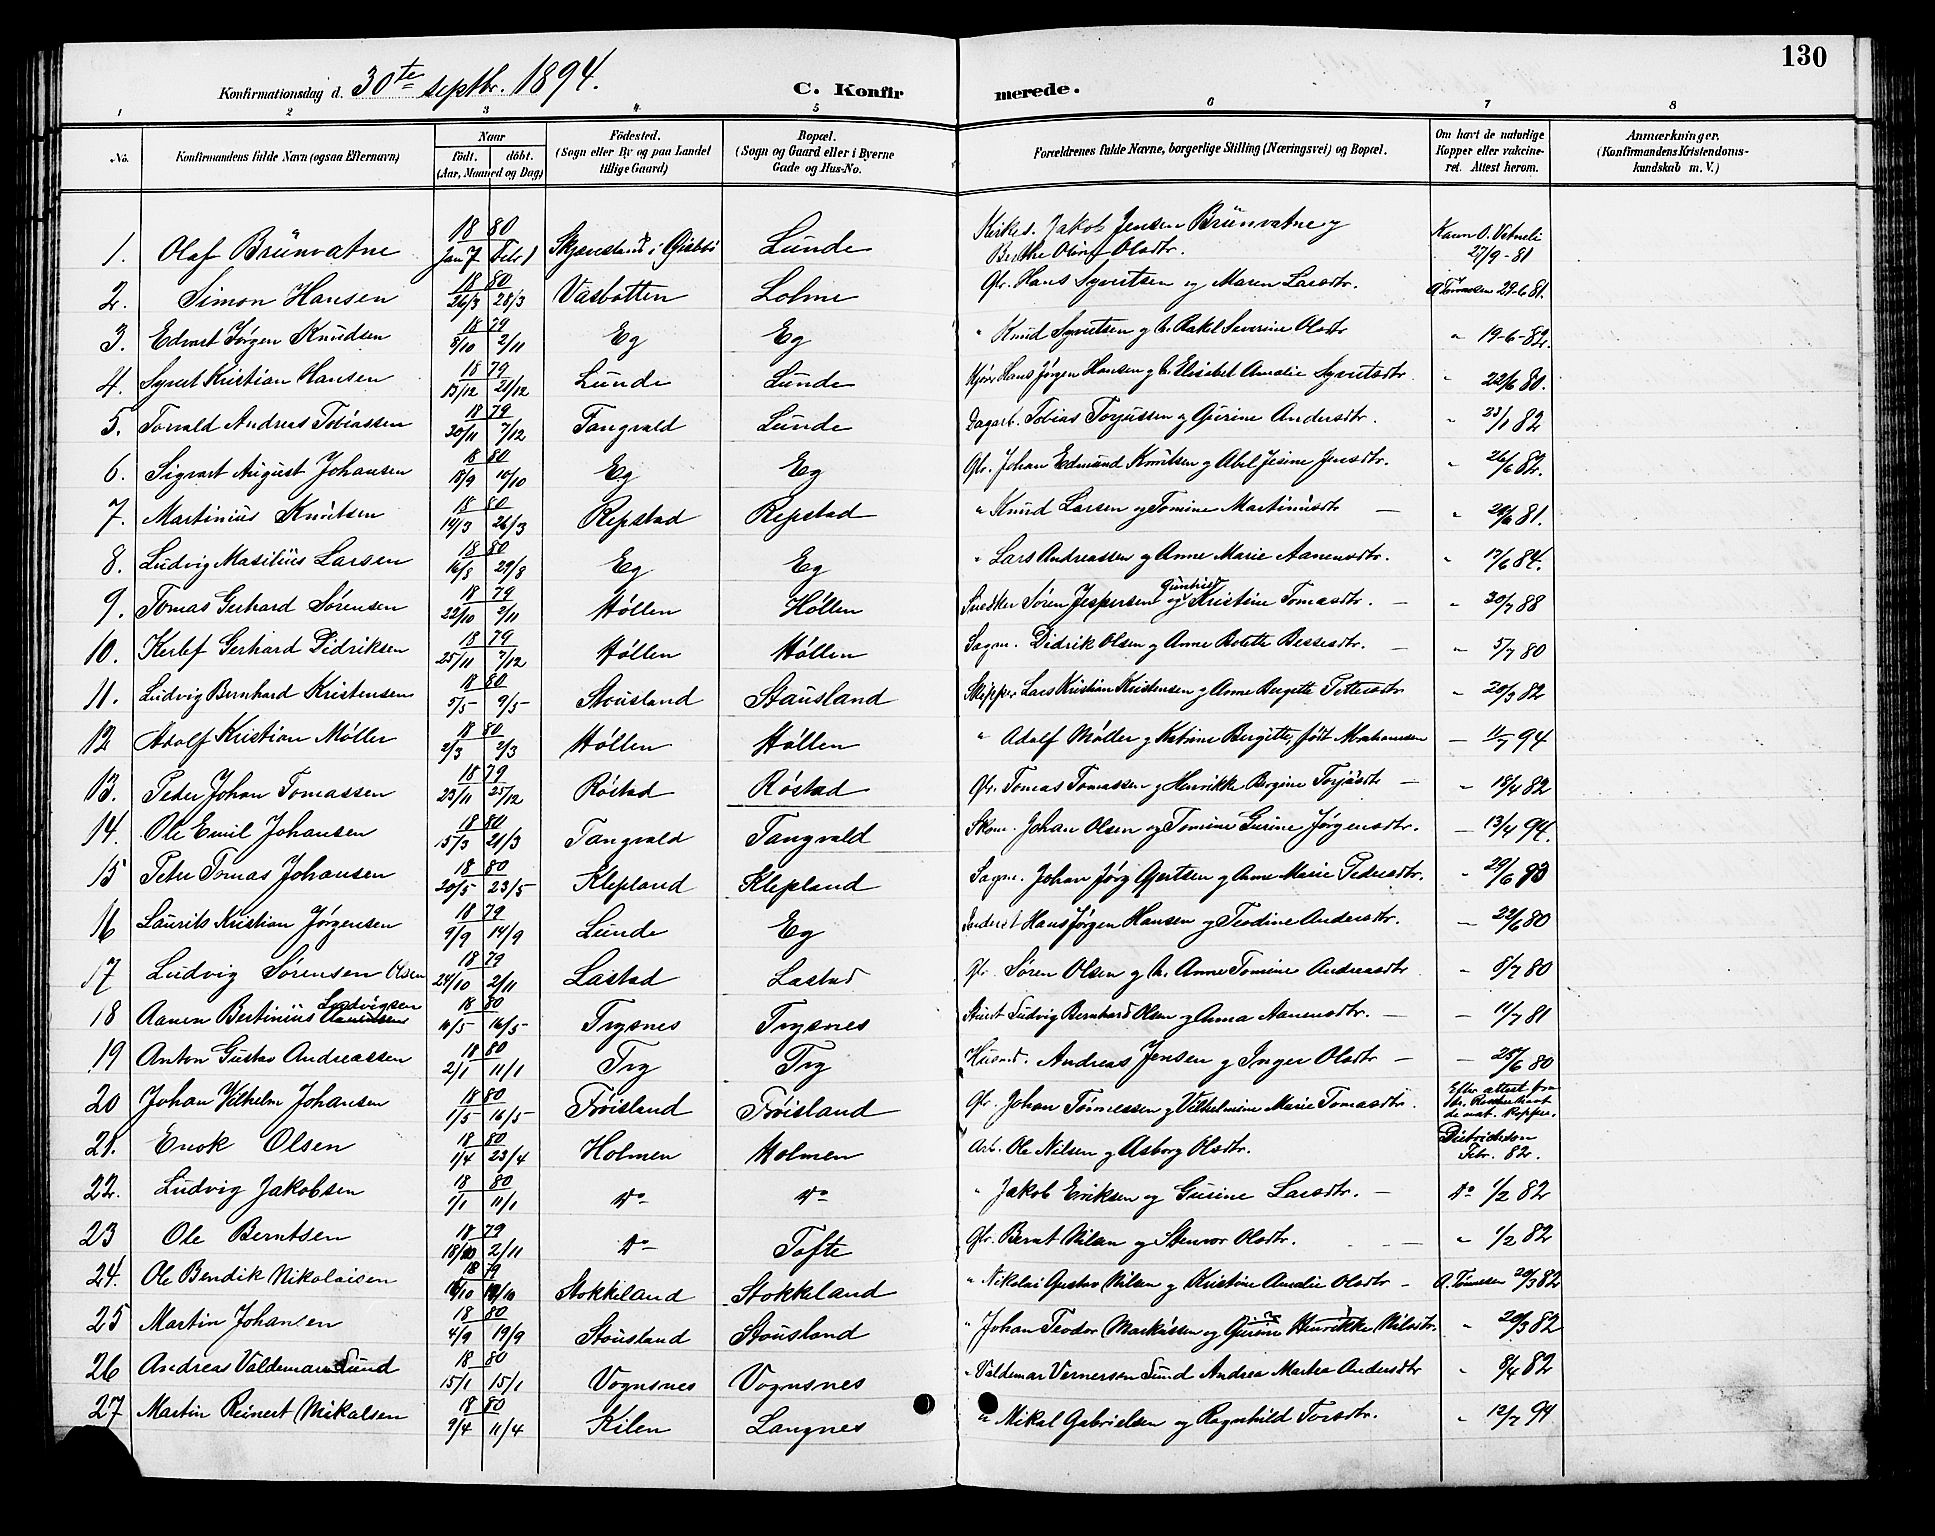 130
Konfirmationsdag d. 30te septbr. 1894. C. Konfirmerede.
1 2 3 4 5 6 7 8
No. Konfirmandens fulde Navn (ogsaa Efternavn) Naar födt. döbt. (Aar, Maaned og Dag) Födested. (Sogn eller By og paa Landet tillige Gaard) Bopæl. (Sogn og Gaard eller i Byerne Gade og Hus-No. Forældrenes fulde Navne, borgerlige Stilling (Næringsvei) og Bopæl. Om havt de naturlige Kopper eller vakcineret. Attest herom. Anmærkninger. (Konfirmandens Kristendomskundskab m. V.)
1. Olaf Brünvatne 1880 Jan 7 Febr 1 Lunde Kirkes. Jakob Jensen Brünvatne g Olsdtr. 27/9-81
2. Simon Hansen 1880 26/3 28/3 Vasbotten Lohne Gbr. Hans Syvertsen og Maren Larsdtr. 29-6 81.
3. Edvart Jørgen Knudsen 1879 8/10 2/11 Eg Eg " Knud Syvertsen g h. Rakel Severine Olsdtr " 19-6-82.
4. Syvert Kristian Hansen 1879 13/12 21/12 Lunde Lunde Hans Jørgen Hansen g h. Elisabet Amalie Syvertsdtr. " 22/6 80.
5. Torvald Andreas Tobiassen 1879 30/11 7/12 Tangvald Lunde Dagarb. Tobias Torjussen g Gurine Andersdtr. " 23/1 82
6. Sigvart August Johansen 1880 18/9 10/10 Eg Eg Gbr. Johan Edmund Knutsen g Abel Jensdtr. " 26/6 82.
7. Martinius Knutsen 1880 14/3 26/3 Repstad Repstad " Knud Larsen og Tomine Martinusdtr " 29/6 81.
8. Ludvig Larsen 1880 16/8 29/8 Eg Eg " Lars Andreassen g Anne Marie Aanensdtr. " 17/6 84.
9. Tomas Gerhard Sørensen 1879 22/10 2/11 Høllen Høllen Snedker Søren Jespersen og Gunhild Kristine Tomasdtr. " 30/7 88
10. Kerlef Gerhard Didriksen 1879 25/11 7/12 Høllen Høllen Sagm. Didrik Olsen g Anne Bolette Bessesdtr. " 5/7 80
11. Ludvig Bernhard Kristensen 1880 5/5 9/5 Stousland Stausland Skipper Lars Kristian Kristensen g Anne Birgitte Pettersdtr " 20/3 82
12 Adolf Kristian Møller 1880 2/3 2/3 Høllen Høllen " Adolf Møller g Katrine Bergitte, født Abrahamsen 94
13. Peder Johan Tomassen 1879 23/11 25/12 Röstad Röstad Gbr. Tomas Tomassen g Henrikke Bergine " 18/4 82
14. Ole Emil Johansen 1880 15/3 21/3 Tangvald Tangvald Skom. Johan Olsen og Tomine Gurine Jørgensdtr. 13/4 94.
15 Peter Tomas Johansen 1880 20/5 23/5 Klepland Klepland Sagm. Johan Jørg Gjertsen g Anne Marie Pedersdtr. " 29/6 83
16 Laurits Kristian Jørgensen 1879 9/9 14/9 Lunde Eg Hans Jørgen Hansen og Teodine Andersdtr. 22/6 80
17 Ludvig Sørensen Olsen 1879 24/10 2/11 Lastad Lastad Gbr. Søren Olsen g h. Anne Tomine Andreasdtr " 8/7 80
18 Aanen Bertinius Ludvigsen 1880 16/5 Trysnes Trysnes Ludvig Bernhard Olsen g Anna Aanensdtr. 11/7 81
19 Anton Gustav Andreassen 1880 2/1 11/1 Try Try Husmd. Andreas Jensen g Inger Olsdtr 28/6 80
20 Johan Vilhelm Johansen 1880 1/5 16/5 Frøisland Frøisland Gbr. Johan Tønnessen g Vilhelmine Marie Tomasdtr. Efter attest fra de nat. Kopper.
21. Enok Olsen 1880 1/4 23/4 Holmen Holmen Arb. Ole Nilsen g Asborg Olsdtr. Dietrichson Febr. 82.
22. Ludvig Jakobsen 1880 1/1 11/1 Do Do " Jakob Eriksen og Gurine Larsdtr. Do 1/2 82
23 Ole Berntsen 1879 18/10 2/11 Do Tofte Gbr. Bernt Nilsen og Stenvor Olsdtr. " 1/2 82
24. Ole Bendik Nikolaisen 1879 Stokkeland Stokkeland " Nikolai Gustav Nilsen g Kristine Amalie Olsdtr A. Tønnesen 20/3 82
25 Martin Johansen 1880 4/9 19/9 Stousland Stousland " Johan Teodor Markussen og Gurine Henrikke Nilsdtr. " 20/3 82
26 Andreas Valdemar Lund 1880 15/1 15/1 Vognsnes Vognsnes " Valdemar Vernersen Lund Andrea Martea Andersdtr " 8/4 82
27 Martin Reinert Mikalsen 1880 9/4 11/4 Kilen Langnes " Mikal Gabrielsen og Ragnhild Torsdtr. " 12/7 94